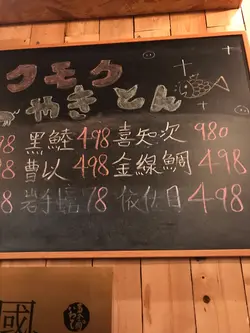 クモク
やきとん
98 黑鯥 498 喜知次 980
8 曹以 498 金線鯛 498
8 岩手 78 依佐目 498
國